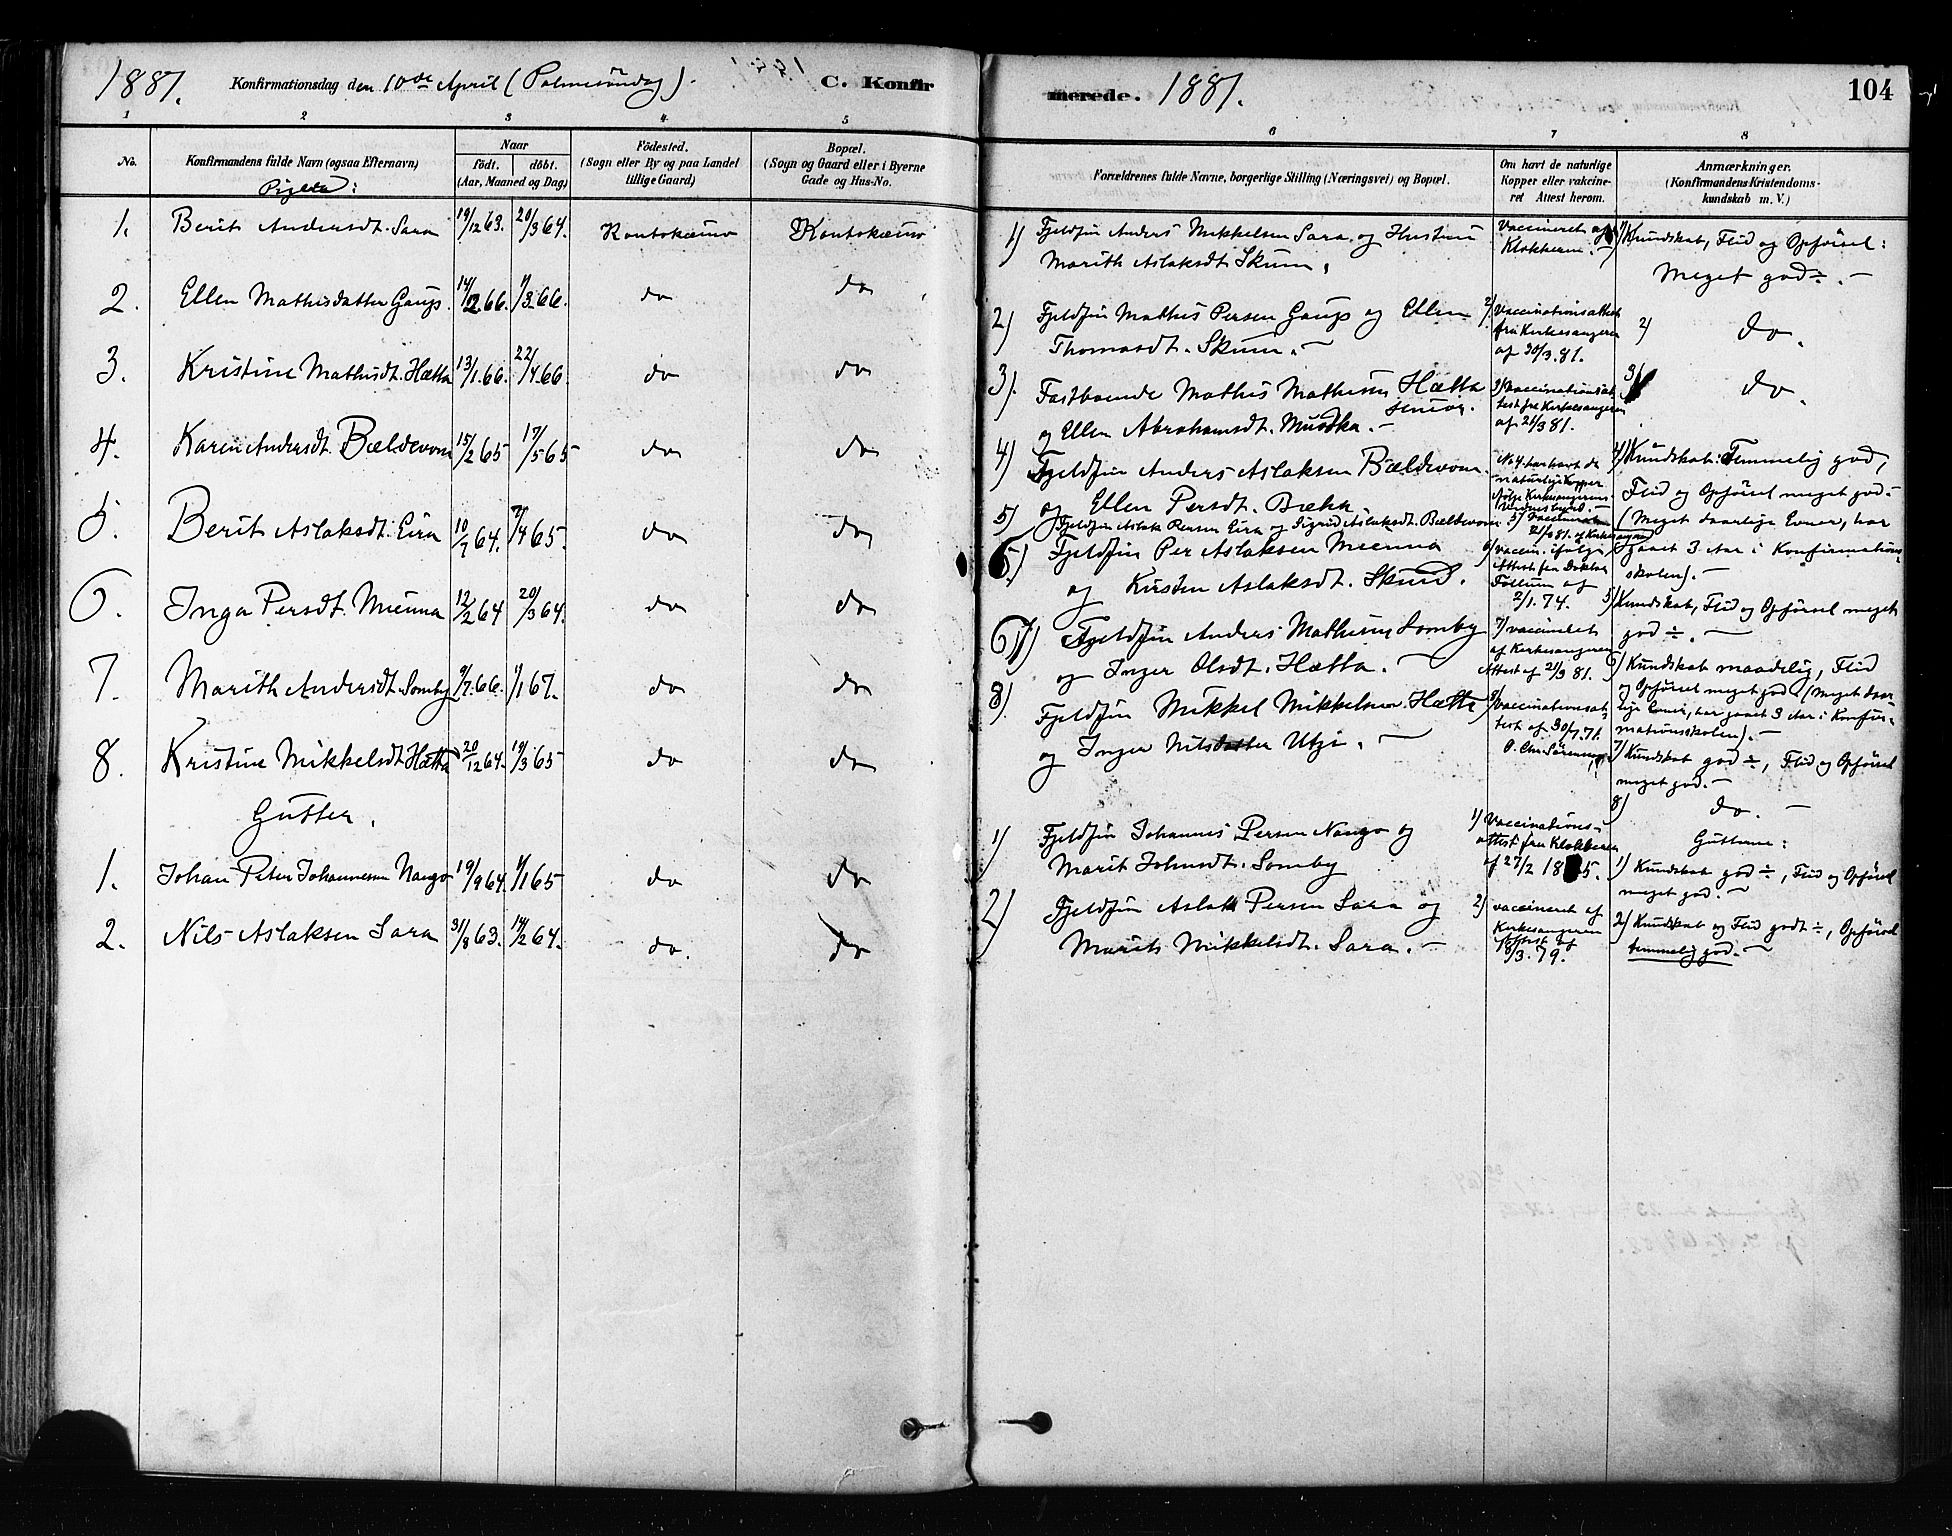 1881. Konfirmationsdag den 10de April (Palmesöndag). C. Konfir
1 2 3 4 5
No. Konfirmandens fulde Navn (ogsaa Efternavn) Naar födt. döbt. (Aar, Maaned og Dag) Födested. (Sogn eller By og paa Landet tillige Gaard) Bopæl. (Sogn og Gaard eller i Byerne Gade og Hus-No.
Piger:
1. Berit Andersdt. Sara 19/12 63. 20/3 64. Koutokæino Koutokæino
2. Ellen Mathisdatter Gaup. 14/2 66. 1/3 66. do do
3. Kristine Mathisdt. Hætta 13/1 66. 22/4 66. do do
4. Karen Andersdt. Bældevom 15/2 65 17/5 65 do do
5. Berit Aslaksdt. Eira 10/7 64. /4 65. do do
6. Inga Persdt. Mienna 12/2 64 20/3 64. do do
7. Marith Andersdt. Somby 9/7 66. 1/1 67. do do
8. Kristine Mikkelsdt. Hætta 20/12 64. 19/3 65 do do
Gutter.
1. Johan Peter Johannesen Nango 19/9 64 1/1 65 do do
2. Nils Aslaksen Sara 31/8 63. 14/2 64. do. do
merede. 1881. 104
6 7 8
Forældrenes fulde Navne, borgerlige Stilling (Næringsvei) og Bopæl.
Om havt de naturlige Kopper eller vakcineret Attest herom.
Anmærkninger. (Konfirmandens Kristendomskundskab m. V.)
1) Fjeldfin Anders Mikkelsen Sara og Hustru
Marith Aslaksdt. Skum.
Vaccineret af
Klokkeren. -
1) Kundskab, Flid og Opförsel:
Meget god ÷. -
2) Fjeldfin Mathis Persen Gaup og Ellen
Thomasdt. Skum. -
2) Vaccinationsattest
fra Kirkesangeren
af 30/3. 81.
2) do.
3). Fastboende Mathis Mathisen Hætta
senior.
og Ellen Abrahamsdt. Muodka. -
3) Vaccinationsat
test fra Kirkesangeren
af 21/3 81.
3) do.
4) Fjeldfin Anders Aslaksen Bældevom.
og Ellen Persdt. Bækka
No 4. har havt de
naturlige Kopper
ifölge Kirkesangerens
Vidnesbyrd. -
4) Kundskab: Temmelig god,
Flid og Opförsel meget god -
(Meget daarlige Evner, har
gaaet 3 Aar i Konfirmations-
skolen). -
5) Fjeldfin Aslak Persen Eira og Sigrid Aslaksdt. Bældevom
5) Vaccineret
21/3 81. af Kirkesangeren
5) Kundskab, Flid og Opförsel meget
god ÷. -
6) Fjeldfin Per Aslaksen Mienna
og Kirsten Aslaksdt. Skum.
6) Vaccin. ifölge
Attest fra Doktor
Follum af
2/1. 74.
6) Kundskab maadelig, Flid
og Opförsel meget god (Meget daar-
lige Evner, har gaaet 3 Aar i Konfir-
mationsskolen). -
7) Fjeldfin Anders Mathisen Somby
og Inger Olsdt. Hætta. -
7) Vaccineret
af Kirkesangeren
Attest af 21/3 81.
7) Kundskab god ÷, Flid og Opförsel
meget god. -
8) Fjeldfin Mikkel Mikkelsen Hætta
og Inger Nilsdatter Utzi. -
8) Vaccinationsat-
test af 30/7. 71.
O. Chr. Sörensen
8) do. -
Guttene:
1) Fjeldfin Johannes Persen Nango og
Marit Johnsdt. Somby
1) Vaccinations-
attest fra Klokkeren
af 27/2 18 5.
1) Kundskab god ÷, Flid og Opförsel
meget god. -
2) Fjeldfin Aslak Persen Sara og
Marith Mikkelsdt. Sara. -
2) Vaccineret af
Kirkesangeren
Attest af
18/3. 79.
2) Kundskab og Flid godt ÷, Opförsel
temmelig god. -